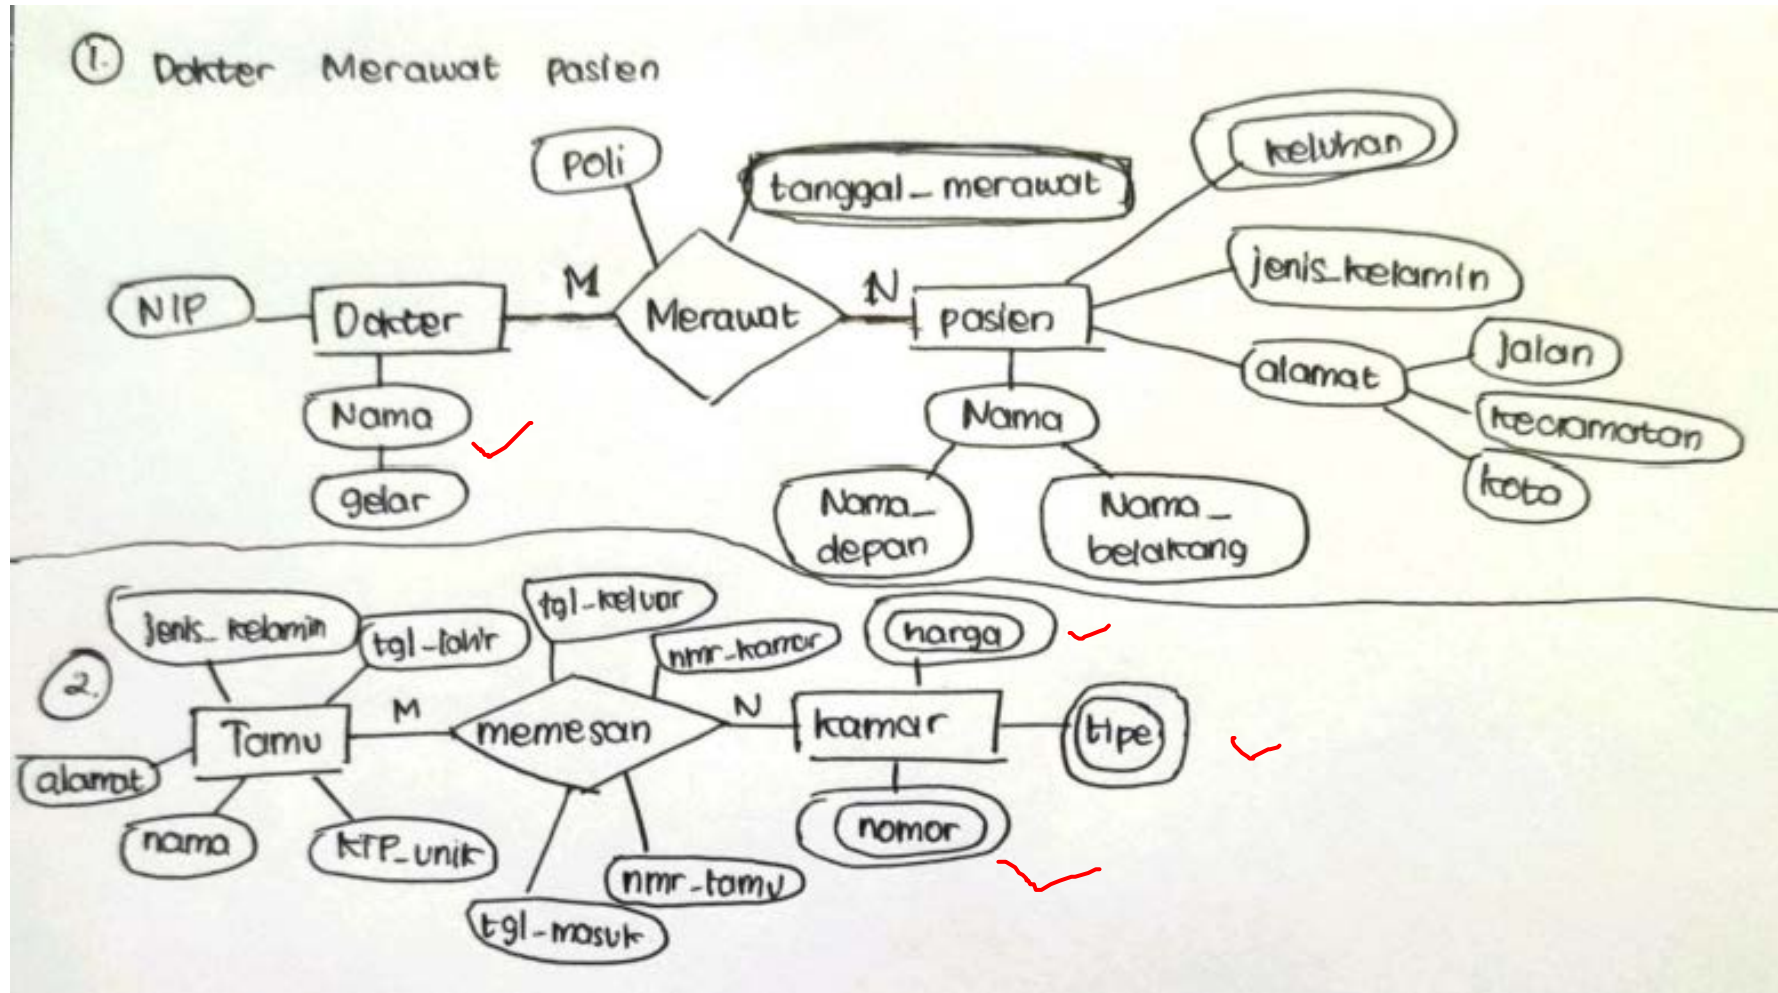 1. Dokter Merawat pasien
poli
tanggal_merawat
keluhan
jenis_kelamin
NIP
Dokter
M
Merawat
N
pasien
alamat
Jalan
kecamatan
kota
Nama
gelar
Nama
Nama_
depan
Nama_
belakang
2.
jenis_kelamin
tgl-lahir
tgl-keluar
nmr-kamar
harga
Tamu
M
memesan
N
kamar
tipe
alamat
nama
KTP_unik
nmr-tamu
tgl-masuk
nomor